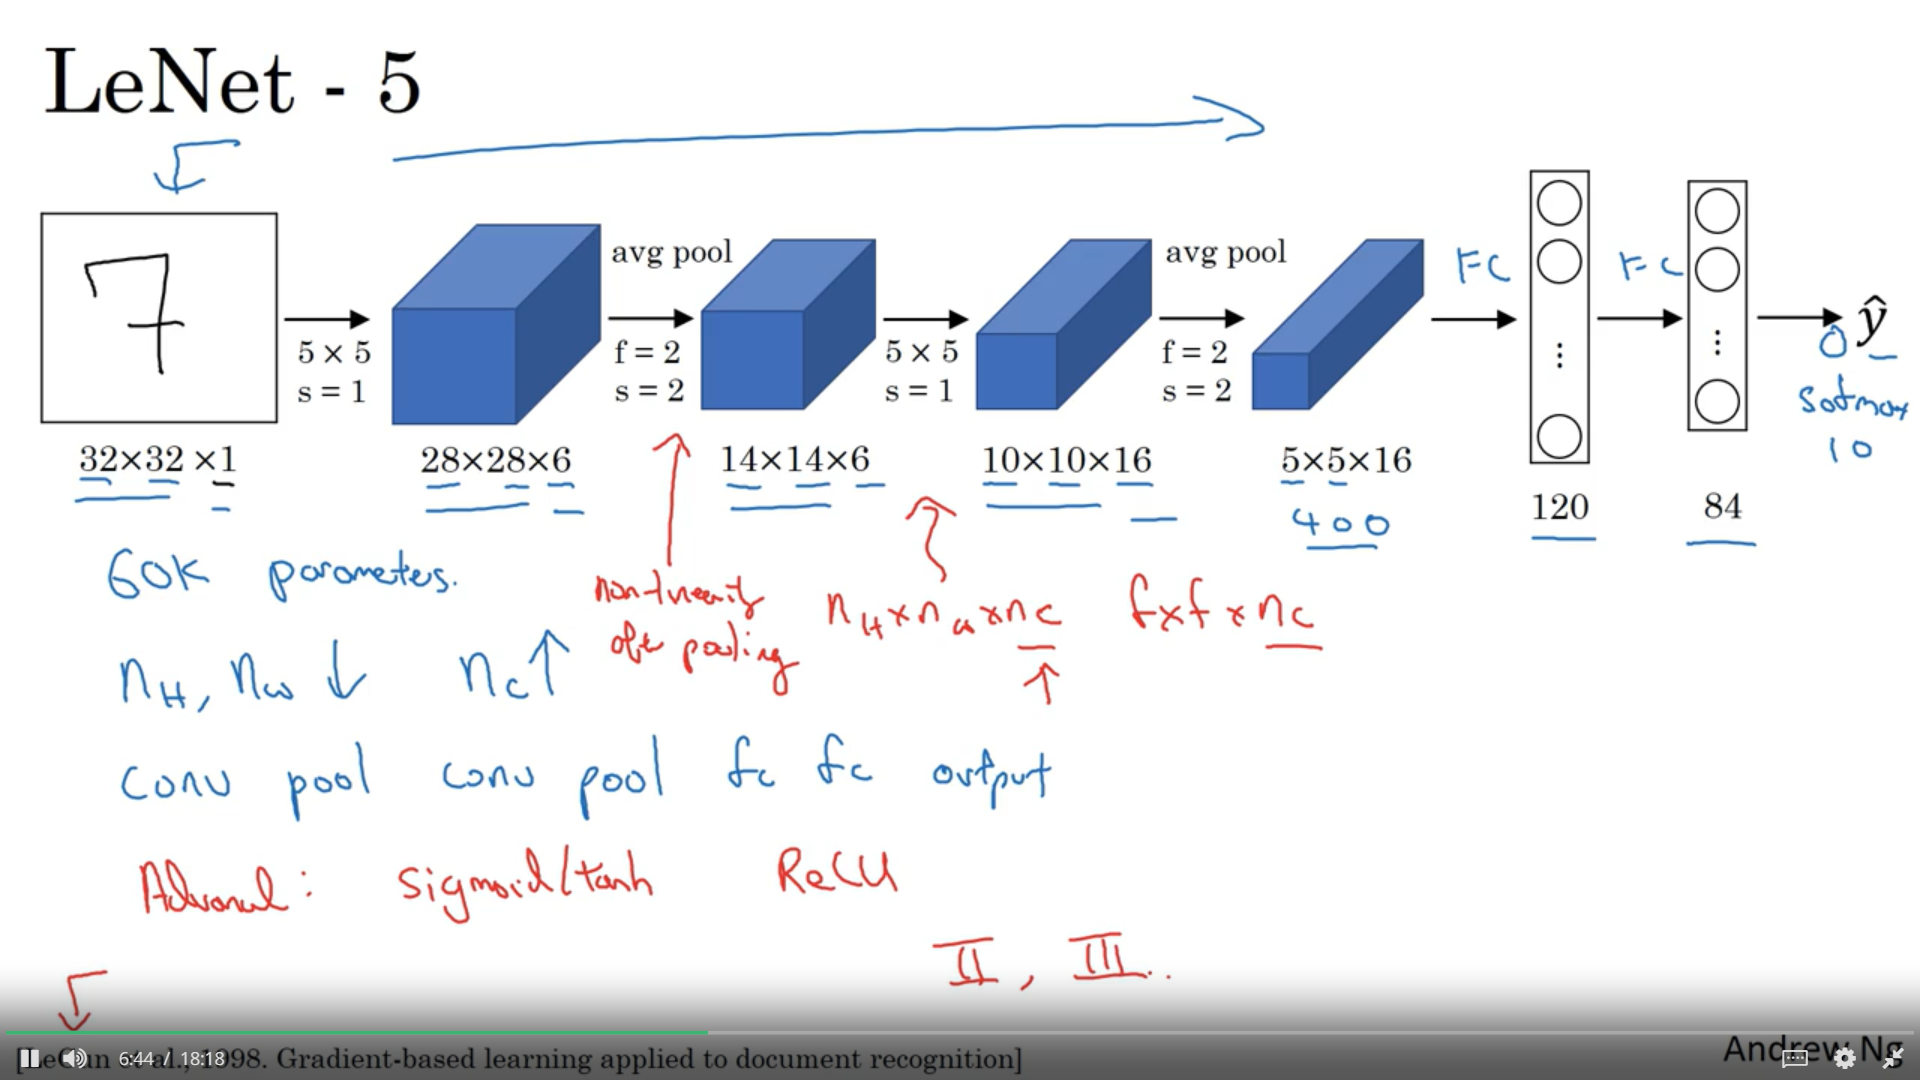 LeNet - 5
7
avg pool
avg pool
FC
FC
5 × 5
s = 1
f = 2
s = 2
5 × 5
s = 1
f = 2
s = 2
⋮
⋮
ŷ
softmax
10
32×32 ×1
28×28×6
14×14×6
10×10×16
5×5×16
400
120
84
60K parameters.
non-linearity
after pooling
nH×nW×nC f×f×nC
nH, nW ↓ nC ↑
conv pool conv pool fc fc output
Advanced: sigmoid/tanh ReLU
II, III..
6:44 / 18:18
[LeCun et al., 1998. Gradient-based learning applied to document recognition]
Andrew Ng